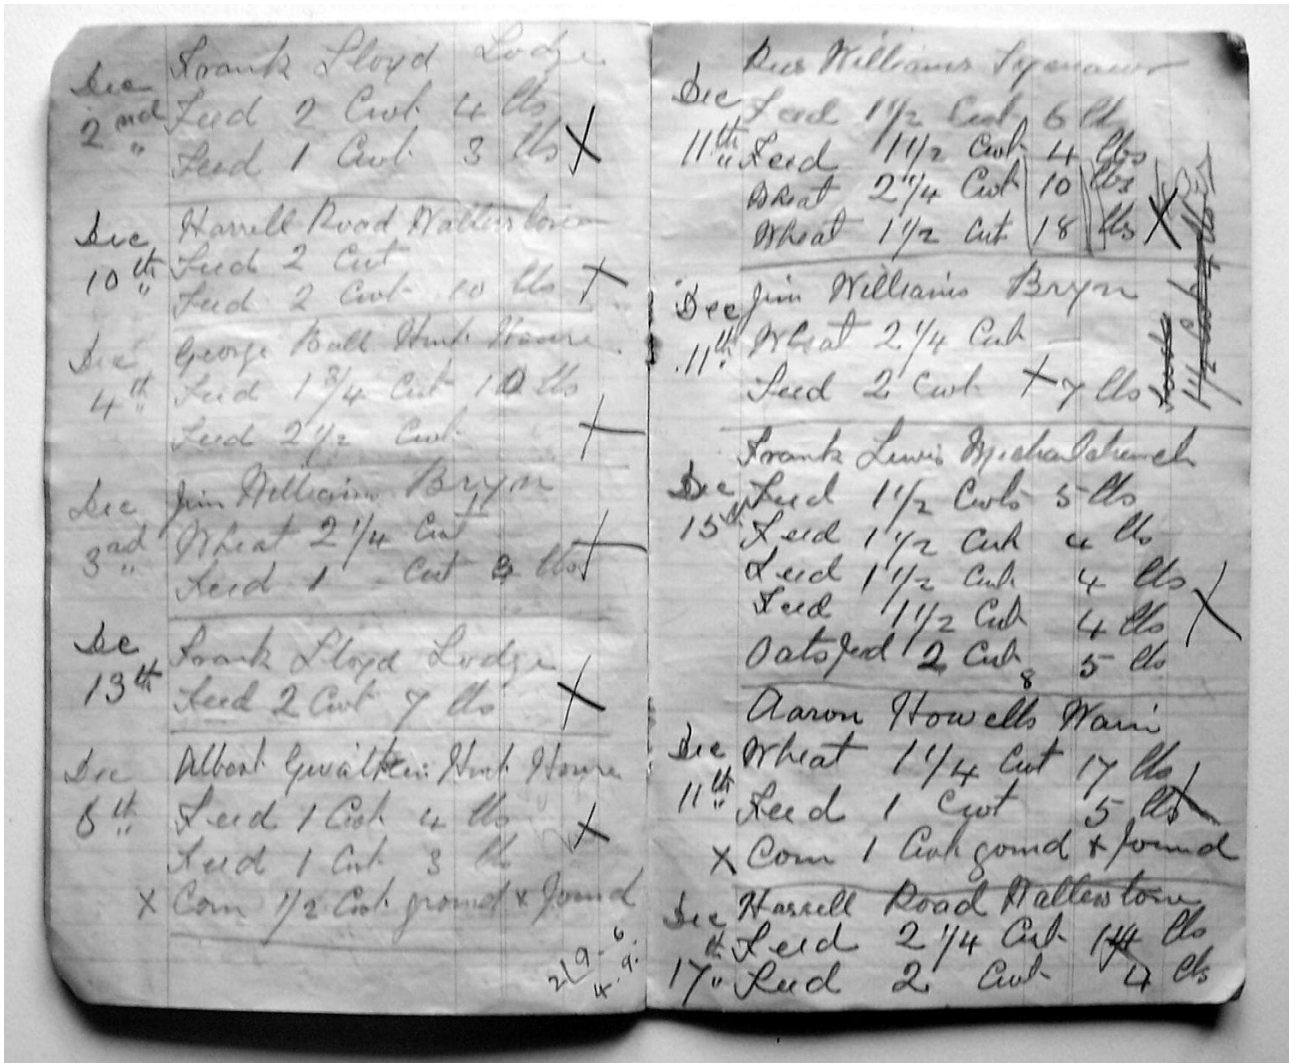 Frank Lloyd Lodge
Dec
2nd " Feed 2 Cwt 4 lbs
Feed 1 Cwt 3 lbs X
Dec Harrell Road Walterstone
10th " Feed 2 Cwt
Feed 2 Cwt 10 lbs X
Dec George Ball Hunt House
4th " Feed 1 3/4 Cwt 10 lbs
Feed 2 1/2 Cwt X
Dec Jim Williams Bryn
3rd " Wheat 2 1/4 Cwt
Feed 1 Cwt lbs X
Dec Frank Lloyd Lodge
13th Feed 2 Cwt 7 lbs X
Dec Albert Hunt House
6th " Feed 1 Cwt 4 lbs
Feed 1 Cwt 3 lb X
X Corn 1/2 Cwt ground & found
2 | 9 . 6.
4 . 9.
Williams
Dec Feed 1 1/2 Cwt 6 lbs
11th " Feed 1 1/2 Cwt 4 lbs
Wheat 2 1/4 Cwt 10 lbs
Wheat 1 1/2 Cwt 18 lbs X
Dec Jim Williams Bryn
11th " Wheat 2 1/4 Cwt
Feed 2 Cwt X 7 lbs
Frank Lewis
Dec Feed 1 1/2 Cwts 5 lbs
15th Feed 1 1/2 Cwt 4 lbs
Feed 1 1/2 Cwt 4 lbs
Feed 1 1/2 Cwt 4 lbs X
Oats feed 2 Cwt 8 5 lbs
Aaron Howells Wain
Dec Wheat 1 1/4 Cwt 17 lbs
11th " Feed 1 Cwt 5 lbs X
X Corn 1 Cwt gound & found
Dec Harrell Road Walterstone
Feed 2 1/4 Cwt lbs
17th " Feed 2 Cwt 4 lbs